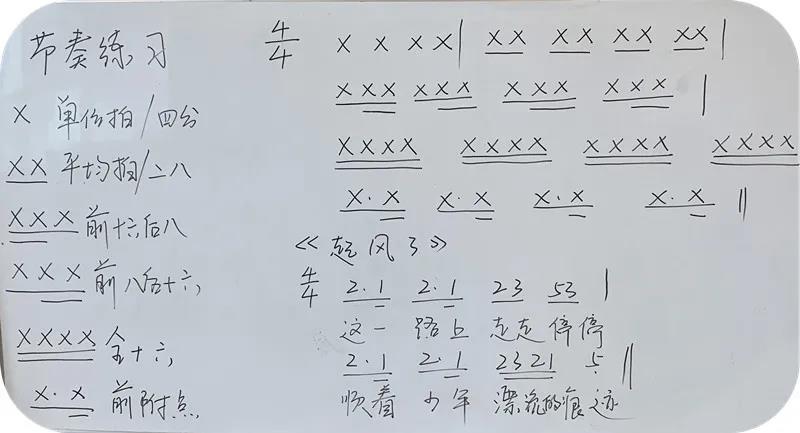 节奏练习
X 单位拍/四分
XX 平均拍/二八
XXX 前十六后八
XXX 前八后十六
XXXX 全十六
X· X 前附点
4/4 X X X X | XX XX XX XX |
XXX XXX XXX XXX |
XXXX XXXX XXXX XXXX
X· X X· X X· X X· X ‖
《起风了》
4/4 2·1 2·1 23 53 |
这一 路上 走走 停停
2·1 2·1 2321 5 ‖
顺着 少年 漂流的痕迹